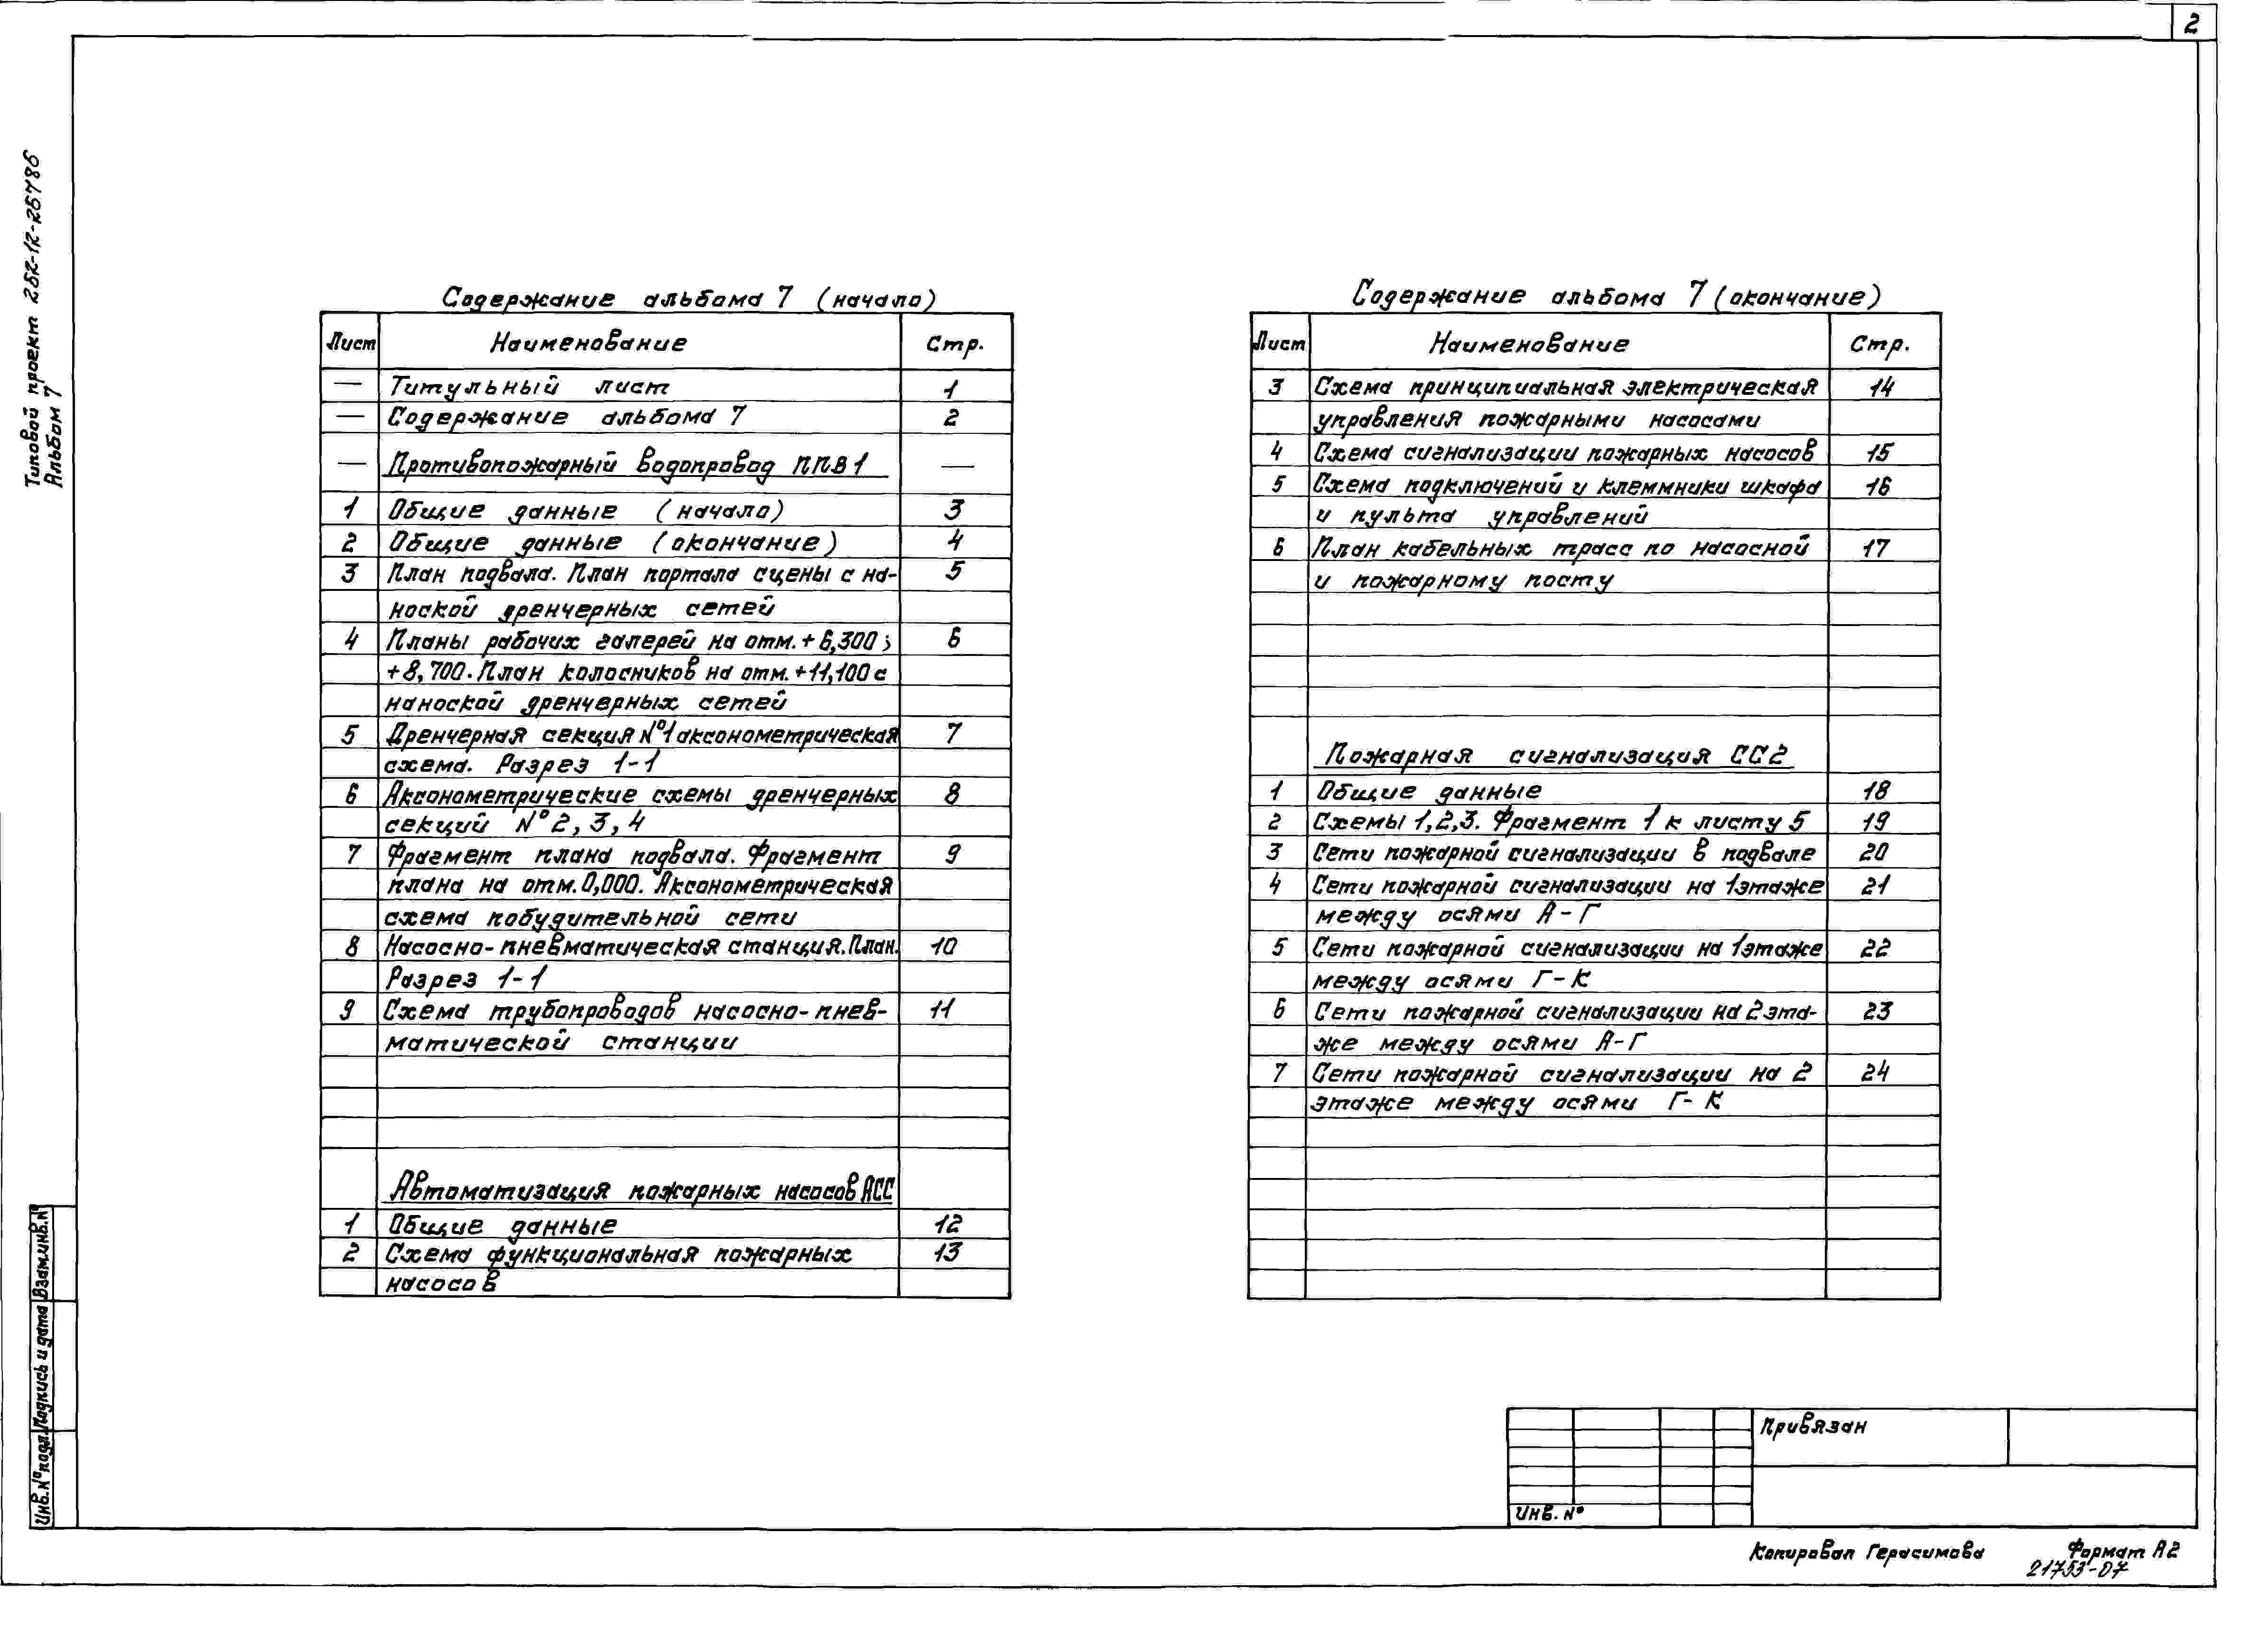 2
Типовой проект 262-12-257.86
Альбом 7
Содержание альбома 7 (начало)
Лист Наименование Стр.
— Титульный лист 1
— Содержание альбома 7 2
— Противопожарный водопровод ППВ1 —
1 Общие данные (начало) 3
2 Общие данные (окончание) 4
3 План подвала. План портала сцены с на- 5
ноской дренчерных сетей
4 Планы рабочих галерей на отм. +6,300; 6
+8,700. План колосников на отм. +11,100 с
наноской дренчерных сетей
5 Дренчерная секция №1 аксонометрическая 7
схема. Разрез 1-1
6 Аксонометрические схемы дренчерных 8
секций №2, 3, 4
7 Фрагмент плана подвала. Фрагмент 9
плана на отм. 0,000. Аксонометрическая
схема побудительной сети
8 Насосно-пневматическая станция. План. 10
Разрез 1-1
9 Схема трубопроводов насосно-пнев- 11
матической станции
Автоматизация пожарных насосов АСС
1 Общие данные 12
2 Схема функциональная пожарных 13
насосов
Содержание альбома 7 (окончание)
Лист Наименование Стр.
3 Схема принципиальная электрическая 14
управления пожарными насосами
4 Схема сигнализации пожарных насосов 15
5 Схема подключений и клеммники шкафа 16
и пульта управлений
6 План кабельных трасс по насосной 17
и пожарному посту
Пожарная сигнализация СС2
1 Общие данные 18
2 Схемы 1,2,3. Фрагмент 1 к листу 5 19
3 Сети пожарной сигнализации в подвале 20
4 Сети пожарной сигнализации на 1 этаже 21
между осями А-Г
5 Сети пожарной сигнализации на 1 этаже 22
между осями Г-К
6 Сети пожарной сигнализации на 2 эта- 23
же между осями А-Г
7 Сети пожарной сигнализации на 2 24
этаже между осями Г-К
Инв.№подл. Подпись и дата Взам.инв.№
Привязан
Инв. №
Копировал Герасимова Формат А2
21753-07